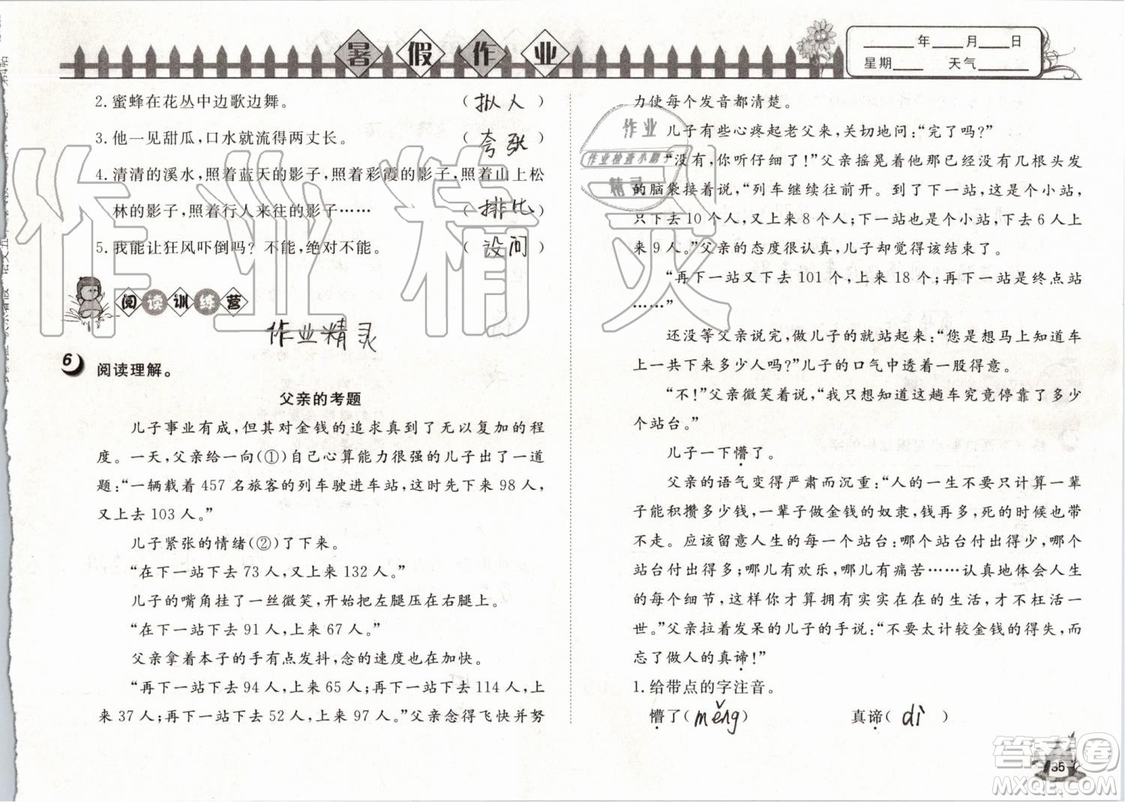 暑假作业
____年____月____日
星期____ 天气______
2. 蜜蜂在花丛中边歌边舞。 （拟人）
3. 他一见甜瓜，口水就流得两丈长。 （夸张）
4. 清清的溪水，照着蓝天的影子，照着彩霞的影子，照着山上松
林的影子，照着行人来往的影子…… （排比）
5. 我能让狂风吓倒吗？不能，绝对不能。 （设问）
阅读训练营
作业精灵
6 阅读理解。
父亲的考题
儿子事业有成，但其对金钱的追求真到了无以复加的程
度。一天，父亲给一向(①)自己心算能力很强的儿子出了一道
题：“一辆载着 457 名旅客的列车驶进车站，这时下来 98 人，
又上去 103 人。”
儿子紧张的情绪(②)了下来。
“在下一站下去 73 人，又上来 132 人。”
儿子的嘴角挂了一丝微笑，开始把左腿压向右腿。
“在下一站下去 91 人，上来 67 人。”
父亲拿着本子的手有点发抖，念的速度也在加快。
“再下一站下去 94 人，上来 68 人；再下一站下去 114 人，上
来 37 人；再下一站下去 52 人……”父亲念得飞快并努
力使每个发音都清楚。
儿子有些心疼起老父来，关切地问：“完了吗？”
“没有，你听仔细了！”父亲摇晃着因缺氧而有些混沌
的脑袋接着说，“列车继续往前开。到了下一站，是个小站，
只下去 10 人，又上来 8 个人；再下一站，又下去 6 人上
来 9 人。”父亲的态度很认真，儿子却觉得该结束了。
“再下一站又下去 101 个，上来 18 个；再下一站是终点站
……”
还没等父亲说完，儿子激动地就站起来：“您是想马上
算下来多少人吗？”儿子的口气中透着一股得意。
“不！”父亲微笑着说，“我想知道这趟车究竟停靠了多少个
站台。”
儿子一下懵了。
父亲的语气变得严肃而沉重：“人的一生不要只计算一辈
子能积攒多少钱，一辈子做金钱的奴隶，再说，死的时候也带
不走。应该留意人生的每一个站台：哪个站台付出得少，哪个
站台付出得多；哪儿有欢乐，哪儿有痛苦……认真地体会人生
的每个细节，这样你才算拥有实实在在的生活，才不枉活一
世。”父亲拉着发呆的儿子的手说：“不要太计较金钱的得失，而
忘了做人的真谛！”
1. 给带点的字注音。
懵了（měng） 真谛（dì）
作业
作业检查小助手
精灵
作业精灵
答案圈
MXQE.COM